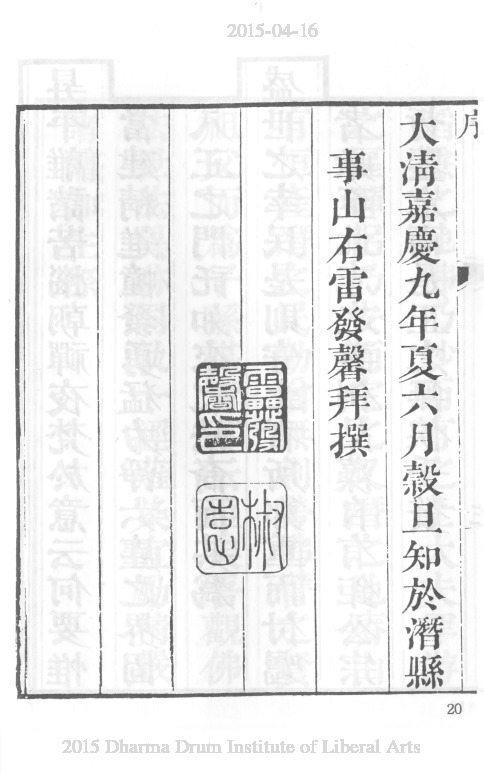 2015-04-16
序
大清嘉慶九年夏六月穀旦知於潛縣
事山右雷發聲拜撰
雷發
聲印
椒
園
20
2015 Dharma Drum Institute of Liberal Arts